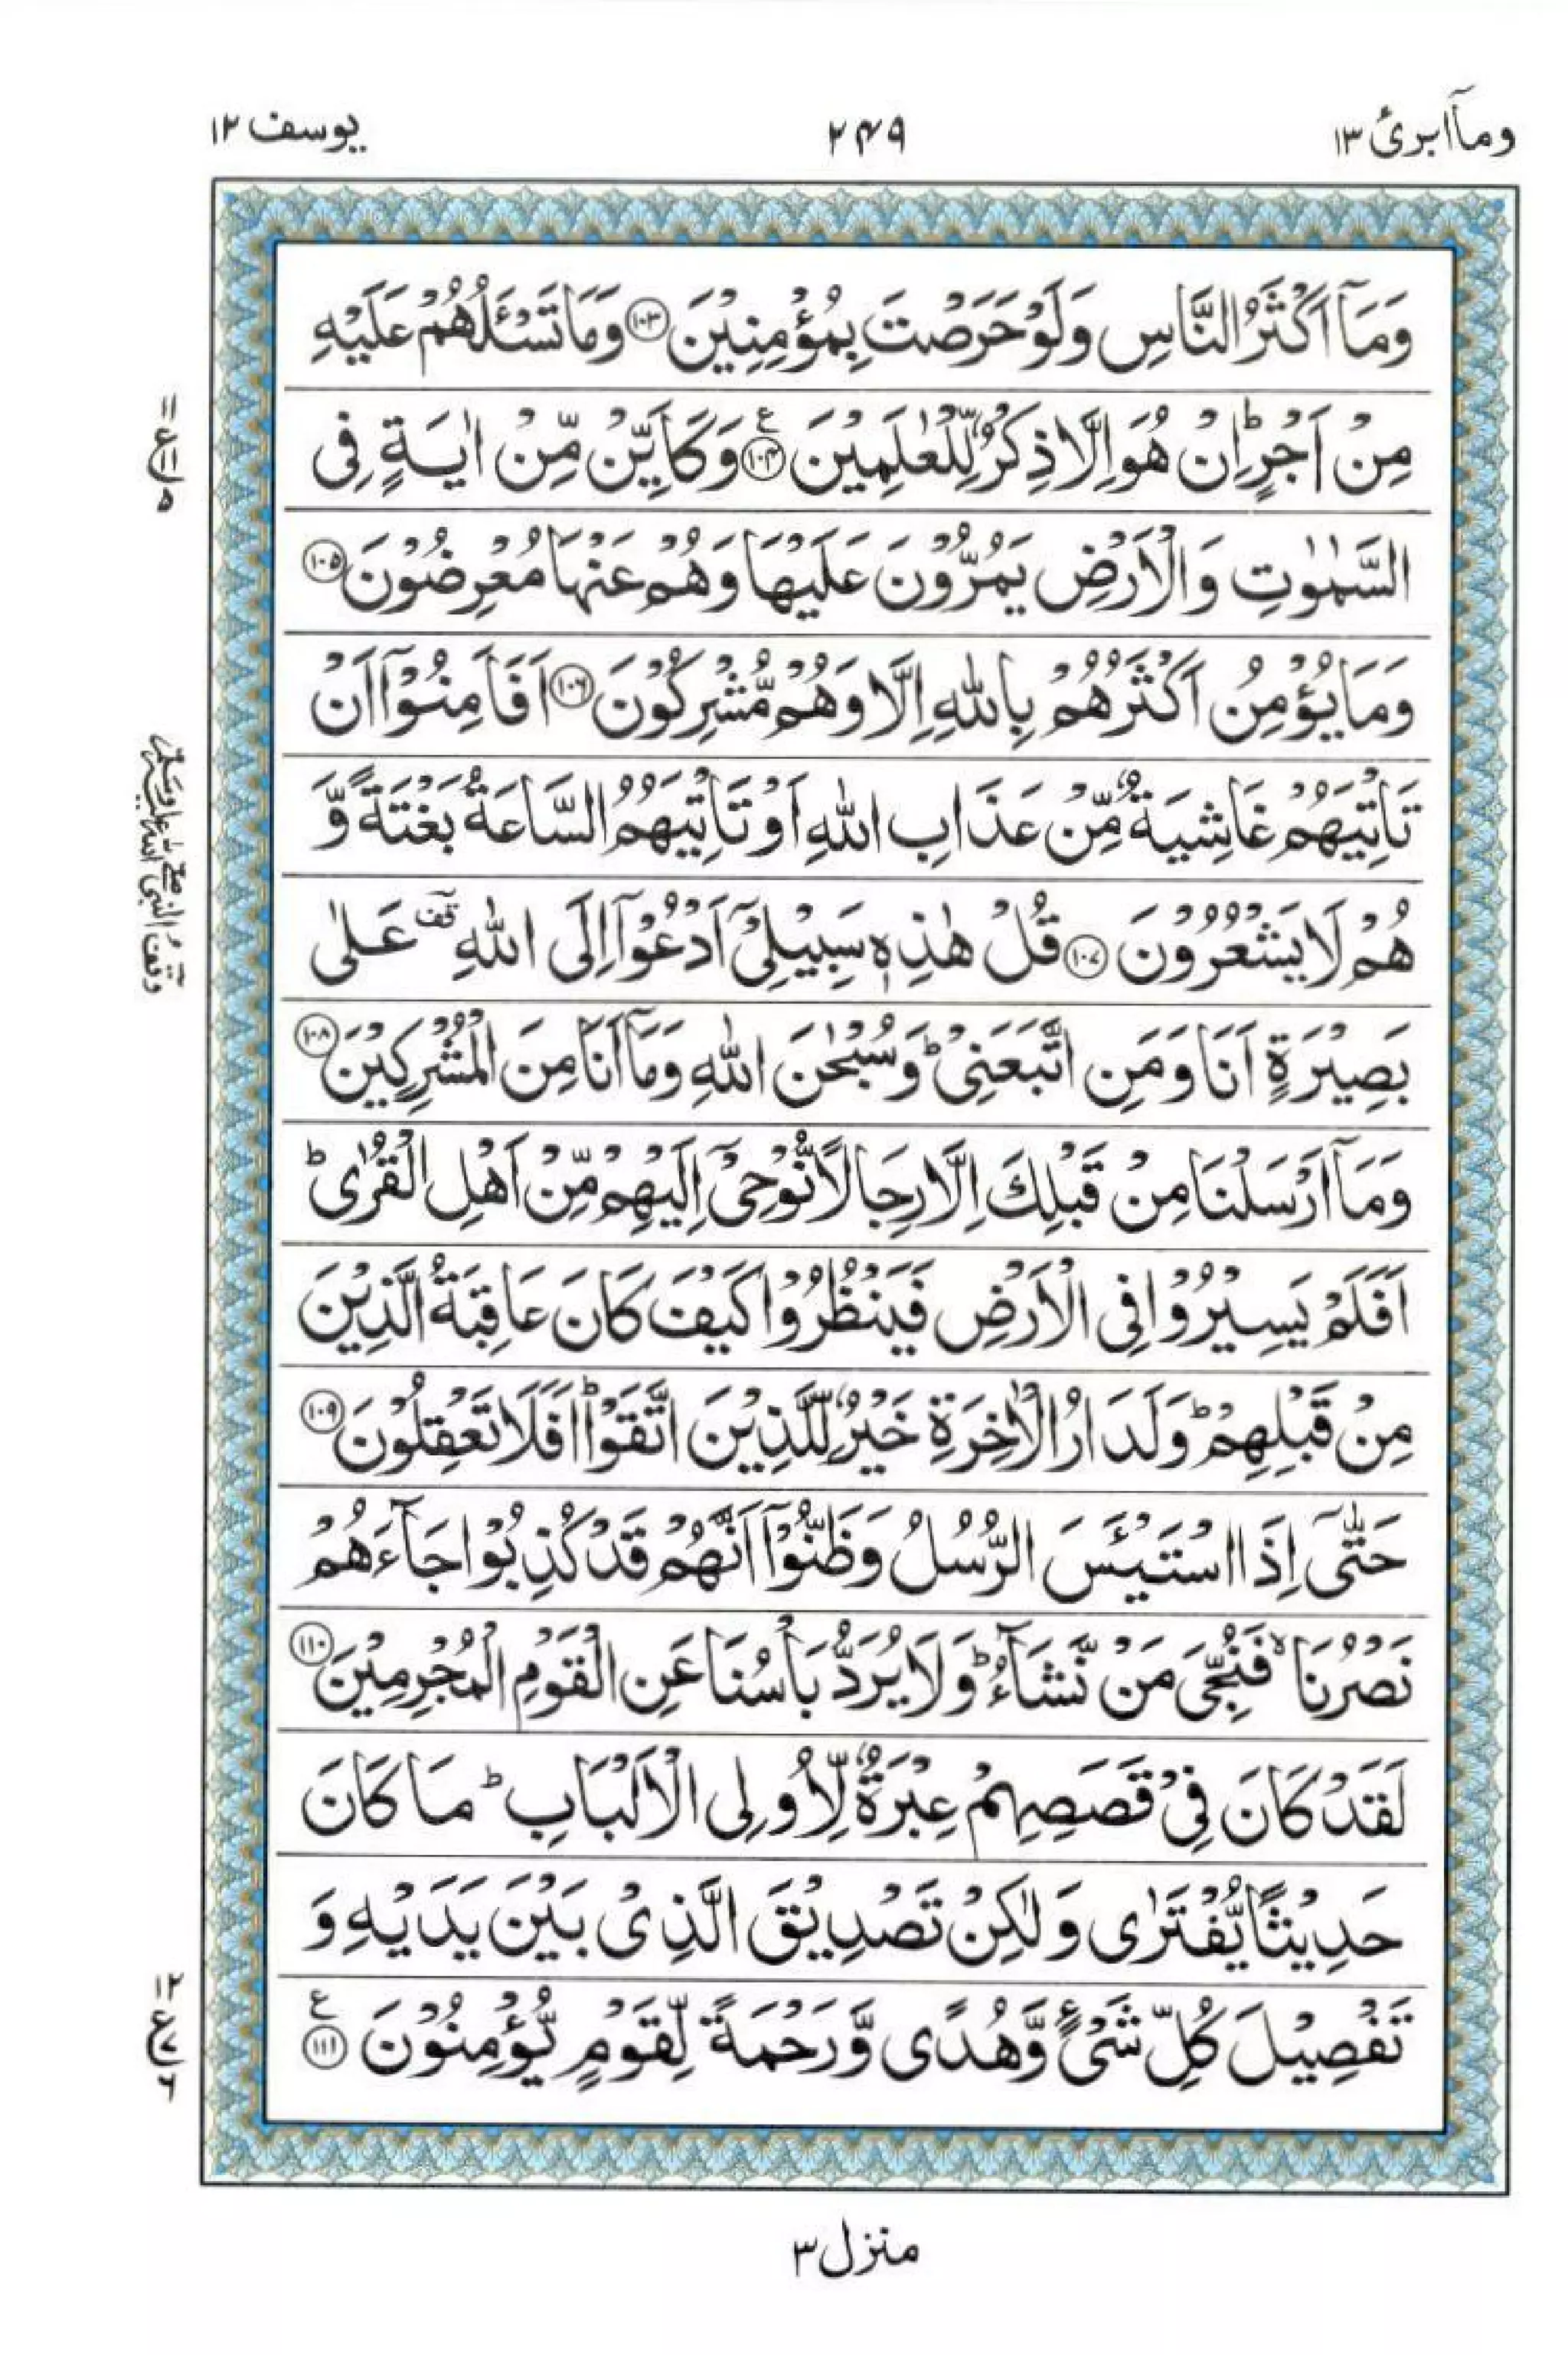 وماۤابرئ ١٣
٢٤٩
يوسف ١٢
وَمَاۤ اَكْثَرُ النَّاسِ وَلَوْ حَرَصْتَ بِمُؤْمِنِيْنَ ١٠٣ وَمَا تَسْـَٔلُهُمْ عَلَيْهِ
مِنْ اَجْرٍؕ اِنْ هُوَ اِلَّا ذِكْرٌ لِّلْعٰلَمِيْنَ ١٠٤ ع وَكَاَيِّنْ مِّنْ اٰيَةٍ فِى
السَّمٰوٰتِ وَالْاَرْضِ يَمُرُّوْنَ عَلَيْهَا وَهُمْ عَنْهَا مُعْرِضُوْنَ ١٠٥
وَمَا يُؤْمِنُ اَكْثَرُهُمْ بِاللّٰهِ اِلَّا وَهُمْ مُّشْرِكُوْنَ ١٠٦ اَفَاَمِنُوْۤا اَنْ
تَاْتِيَهُمْ غَاشِيَةٌ مِّنْ عَذَابِ اللّٰهِ اَوْ تَاْتِيَهُمُ السَّاعَةُ بَغْتَةً وَّ
هُمْ لَا يَشْعُرُوْنَ ١٠٧ قُلْ هٰذِهٖ سَبِيْلِىْۤ اَدْعُوْۤا اِلَى اللّٰهِ قف عَلٰى
بَصِيْرَةٍ اَنَا وَمَنِ اتَّبَعَنِىْؕ وَسُبْحٰنَ اللّٰهِ وَمَاۤ اَنَا مِنَ الْمُشْرِكِيْنَ ١٠٨
وَمَاۤ اَرْسَلْنَا مِنْ قَبْلِكَ اِلَّا رِجَالًا نُّوْحِىْۤ اِلَيْهِمْ مِّنْ اَهْلِ الْقُرٰىؕ
اَفَلَمْ يَسِيْرُوْا فِى الْاَرْضِ فَيَنْظُرُوْا كَيْفَ كَانَ عَاقِبَةُ الَّذِيْنَ
مِنْ قَبْلِهِمْؕ وَلَدَارُ الْاٰخِرَةِ خَيْرٌ لِّلَّذِيْنَ اتَّقَوْاؕ اَفَلَا تَعْقِلُوْنَ ١٠٩
حَتّٰۤى اِذَا اسْتَيْـَٔسَ الرُّسُلُ وَظَنُّوْۤا اَنَّهُمْ قَدْ كُذِبُوْا جَآءَهُمْ
نَصْرُنَاۙ فَنُجِّىَ مَنْ نَّشَآءُؕ وَلَا يُرَدُّ بَاْسُنَا عَنِ الْقَوْمِ الْمُجْرِمِيْنَ ١١٠
لَقَدْ كَانَ فِىْ قَصَصِهِمْ عِبْرَةٌ لِّاُولِى الْاَلْبَابِؕ مَا كَانَ
حَدِيْثًا يُّفْتَرٰى وَلٰكِنْ تَصْدِيْقَ الَّذِىْ بَيْنَ يَدَيْهِ وَ
تَفْصِيْلَ كُلِّ شَىْءٍ وَّهُدًى وَّرَحْمَةً لِّقَوْمٍ يُّؤْمِنُوْنَ ١١١ ع
١١ ع ١١ ٥
وقف النبى صلى الله عليه وسلم
١٢ ع ٧ ٦
منزل ٣